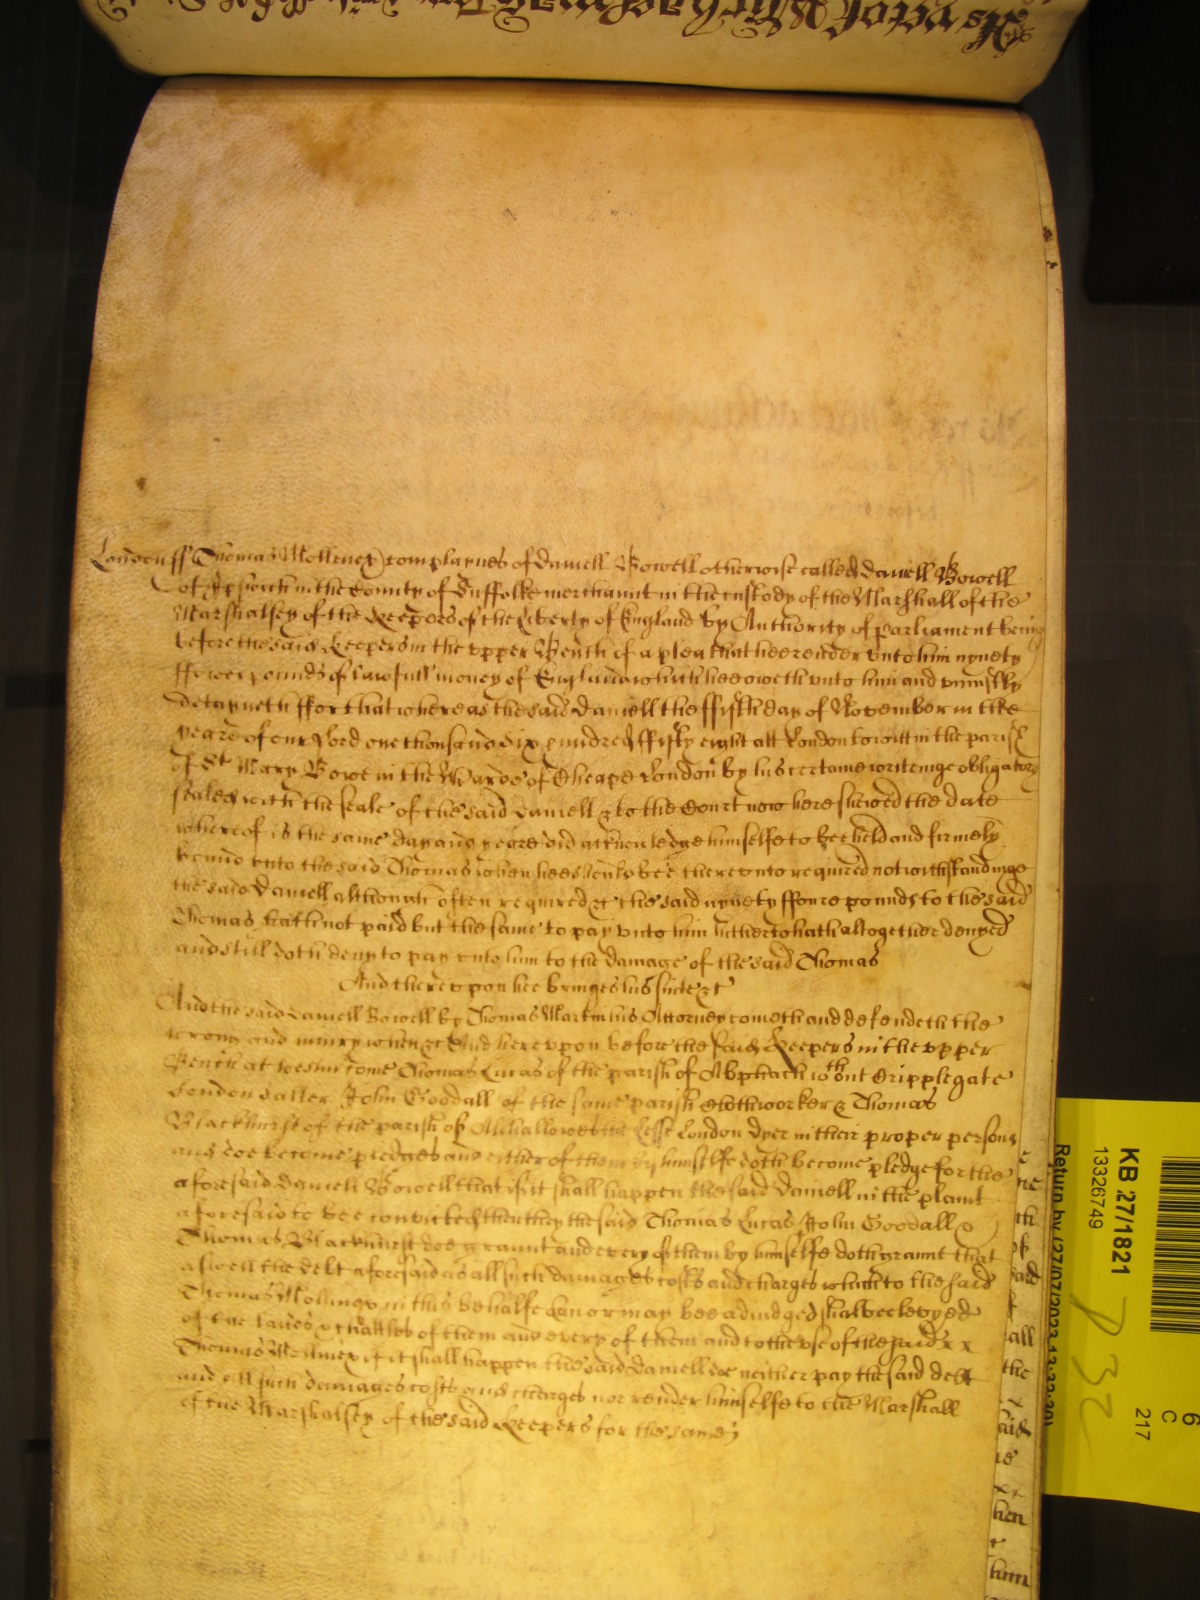 London ss Thomas Mollenex complaynes of Daniell Bowell otherwise called Daniell Bowell
of Ipswich in the County of Suffolke merchaunt in the custody of the Marshall of the
Marshalsey of the Keepers of the Liberty of England by Authority of parliament being
before the said Keepers in the upper Bench of a plea that hee render unto him nynety
ffower pounds of lawfull money of England which hee oweth unto him and uniustly
detayneth ffor that whereas the said Daniell the ffifth day of November in the
yeare of our Lord one thousand six hundred ffifty eight att London to witt in the parish
of St Mary Bowe in the Warde of Cheape London by his certaine writeinge obligatory
sealed with the seale of the said Daniell & to the Court now here shewed the date
whereof is the same day and yeare did acknowledge himselfe to bee held and firmely
bound unto the said Thomas when hee should bee thereunto required notwithstandinge
the said Daniell although often required &c the said nynety ffoure pounds to the said
Thomas hath not paid but the same to pay unto him hitherto hath altogether denyed
and still doth deny to pay unto him to the damage of the said Thomas
And thereupon hee bringes his suite &c
And the said Daniell Bowell by Thomas Martin his Attorney cometh and defendeth the
wrong and iniury when &c And hereupon before the said Keepers in the upper
Bench at Westm come Thomas Lucas of the parish of without Cripplegate
London John Goodall of the same parish Clothworker & Thomas
Blackhurst of the parish of Alhallowes the Lesse London Dyer in their proper persons
and doe become pledges and either of them by himselfe doth become pledge for the
aforesaid Daniell Bowell that if it shall happen the said Daniell in the plaint
aforesaid to bee convicted then they the said Thomas Lucas John Goodall &
Thomas Blackhurst doe graunt and every of them by himselfe doth graunt that
aswell the debt aforesaid as all such damages costs and charges which to the said
Thomas Mollinex in this behalfe shalbee levyed
of the landes & chattles of them and every of them and to the use of the said x x
Thomas Mollinex if it shall happen the said Daniell doe neither pay the said debt
and all such damages costs and charges nor render himselfe to the Marshall
of the Marshalsey of the said Keepers for the same
KB 27/1821
13326749
Return by (27/07/2023
6
C
217